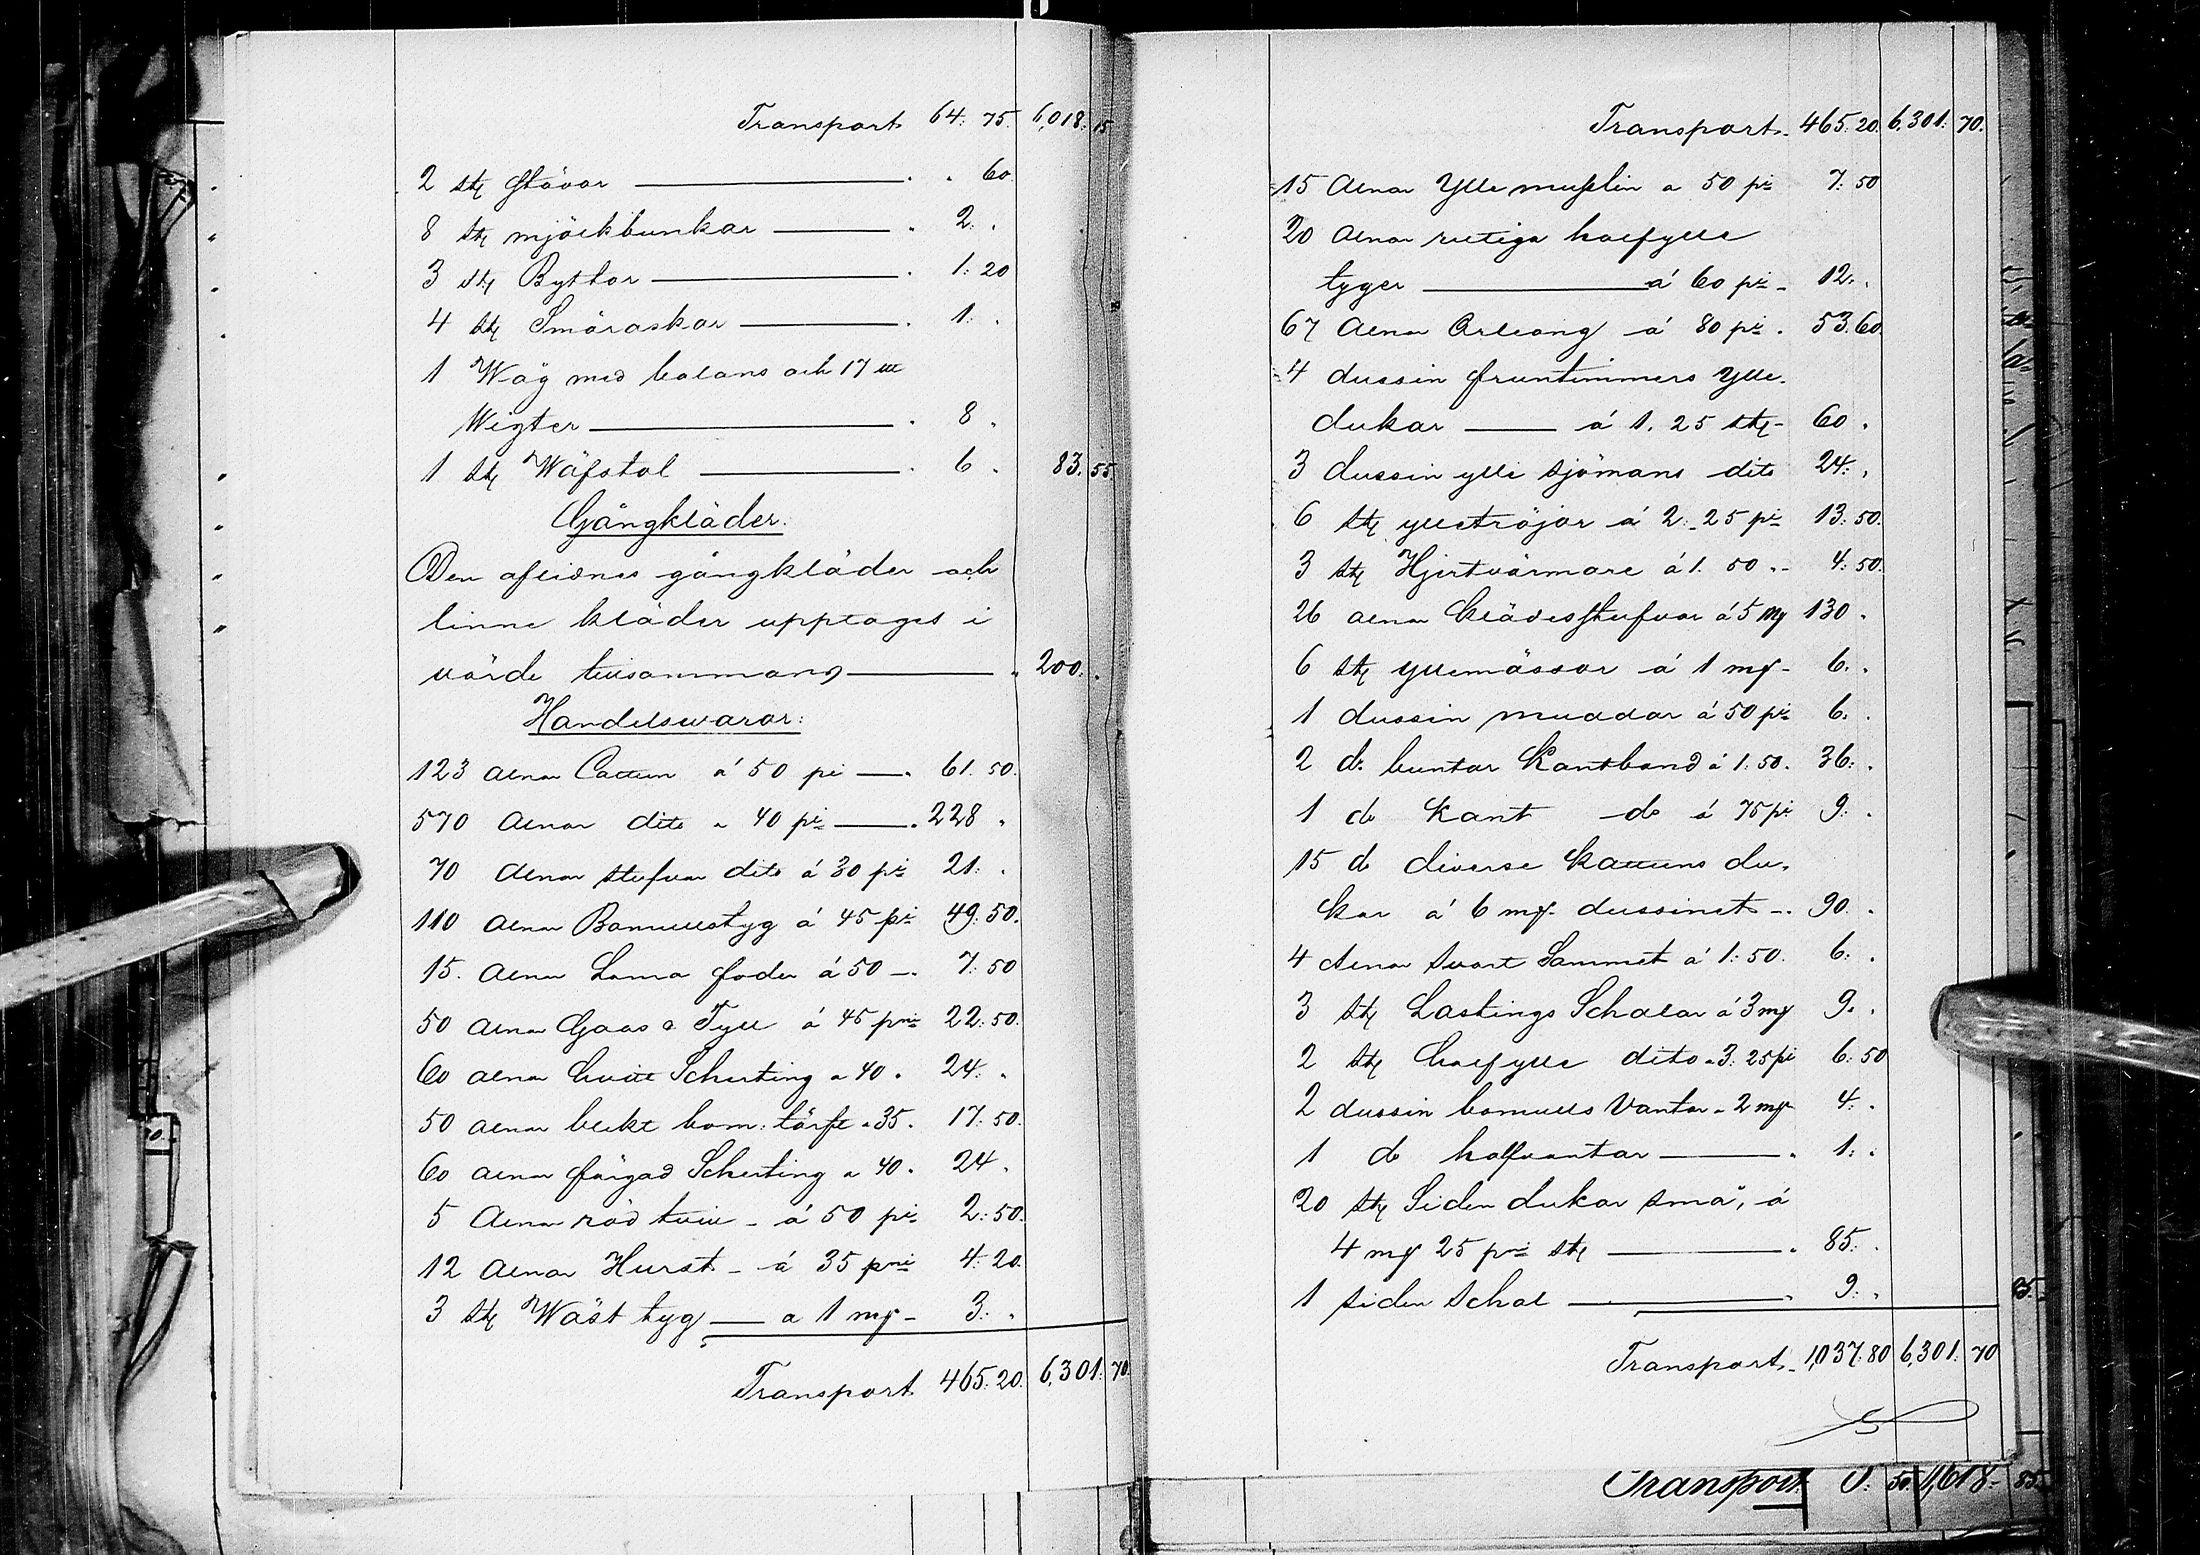 Transport 64: 75. 6,018: 15
2 stq Stävor . . 60
8 stq mjölkbunkar . 2: .
3 stq Byttor . 1: 20
4 stq Smöraskar . 1: .
1 Wåg med balans och 17 ℔
Wigter . 8 .
1 stq Wäfstol . 6 . 83. 55.
Gångkläder:
Den aflidnes gångkläder och
linne kläder upptages i
värde tillsammans . 200. .
Handelswaror:
123 alnar Cattun á 50 pi . 61. 50.
570 alnar dito " 40 pi . 228 .
70 alnar stufvar dito á 30 pi 21: .
110 alnar Bomullstyg á 45 pi 49: 50.
15. alnar Lama foder á 50 . 7: 50
50 alnar Gaas o Tyll á 45 pni 22: 50.
60 alnar hvitt Schirting " 40 . 24: .
50 alnar blekt bom: lärft " 35. 17: 50.
60 alnar färgad Schirting " 40. 24 .
5 alnar röd tvill - á 50 pi 2: 50.
12 alnar Hurst - á 35 pni 4: 20.
3 stq Wäst tyg a 1 mf - 3: .
Transport 465: 20. 6,301: 70.
Transport. 465: 20. 6,301: 70.
15 alnar Ylle musslin a 50 pi 7: 50
20 alnar rutiga halfylle
tyger á 60 pi - 12. .
67 alnar Orleang á 80 pi . 53. 60
4 dussin fruntimmers Ylle-
dukar á 1. 25 stq - 60 .
3 dussin ylle sjömans dito 24: .
6 stq ylletröjor á 2: 25 pi 13: 50.
3 stq Hjertvärmare á 1. 50 . - 4: 50.
26 alnar klädesstufvar á 5 mf 130 .
6 stq yllemössor á 1 mf - 6. .
1 dussin muddar á 50 pi 6. .
2 do buntar Kantband á 1: 50. 36: .
1 do Kant do á 75 pi 9: .
15 do diverse kattuns du-
kar á 6 mf dussinet - . 90. .
4 alnar svart Sammet á 1: 50. 6: .
3 stq Lastings Schalar á 3 mf 9. .
2 stq halfylle dito " 3: 25 pi 6: 50
2 dussin bomulls Vantar " 2 mf 4: .
1 do halfvantar . 1: .
20 stq Siden dukar små, á
4 mf 25 pni stq . 85: .
1 siden Schal . 9: .
Transport. 1,037: 80 6,301: 70
Transport 50. 1,618- 85.